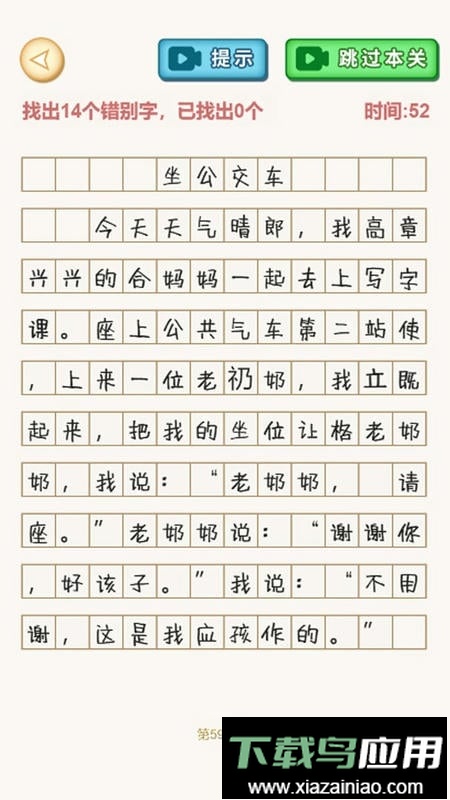 提示
跳过本关
找出14个错别字，已找出0个
时间:52
坐公交车
今天天气晴郎，我高章
兴兴的合妈妈一起去上写字
课。座上公共气车第二站使
，上来一位老礽奶，我立既
起来，把我的坐位让格老奶
奶，我说：“老奶奶， 请
座。”老奶奶说：“谢谢你
，好该子。”我说：“不用
谢，这是我应孩作的。”
第59
下载鸟应用
www.xiazainiao.com